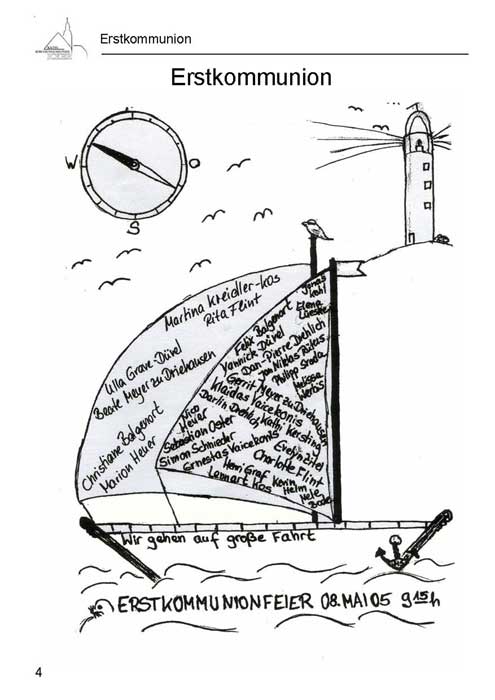 Erstkommunion
Erstkommunion
W
O
S
Martina Kreidler-Kos
Rita Flint
Ulla Grave-Düvel
Beate Meyer zu Driehausen
Christiane Balgenort
Marion Heuer
Jonas
Kohl
Elena
Felix Balgenort
Yannick Düvel
Dan-Pierre Drehlich
Jan Niklas
Philipp
Melissa
Gerrit Meyer zu Driehausen
Klaidas Vaicekonis
Darlin Drehlich
Kathi Kersting
Nico
Heuer
Sebastian Oster
Simon Schnieder
Ernestas Vaicekonis
Evelyn
Charlotte Flint
Henri Graf
Lennart Kos
Kevin
Helm
Nele
Bode
Wir gehen auf große Fahrt
ERSTKOMMUNIONFEIER 08.MAI 05 9 15 h
4